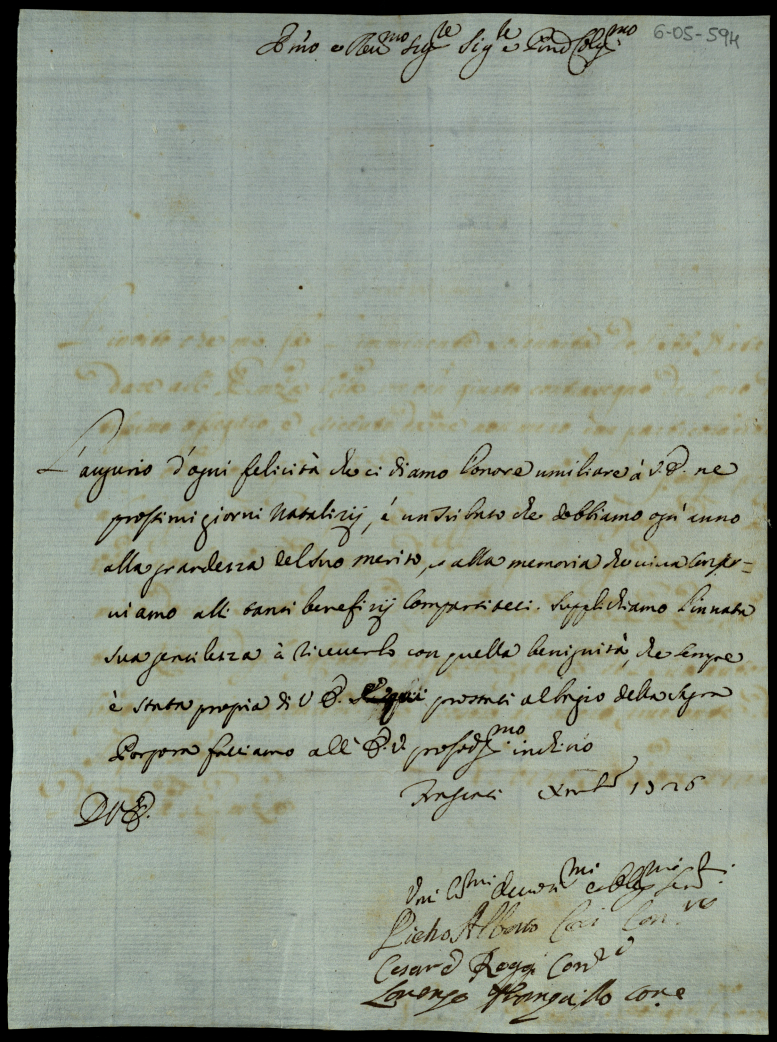 6-05-59H
Em̃o e Reu.mo Sig.re Sig.re e Pñd Col.mo
L'augurio d'ogni felicità che ci diamo l'onore umiliare à V.E. ne
prossimi giorni Natalizij, è un tributo che dobbiamo ogn'anno
alla grandezza del suo merito, e alla memoria che viva conser=
viamo alli tanti benefizij compartiteci. Supplichiamo l'innata
sua gentilezza à riceverlo con quella benignità, che sempre
è stata propria di V.E. prostrati al bagio della Sagra
Porpora facciamo all'E.V. profod.mo inchino
D V E.
Xmbre 1726
Pietro Alberto
Cesare Roggi Con.re
Lorenzo Tranquillo Con.e